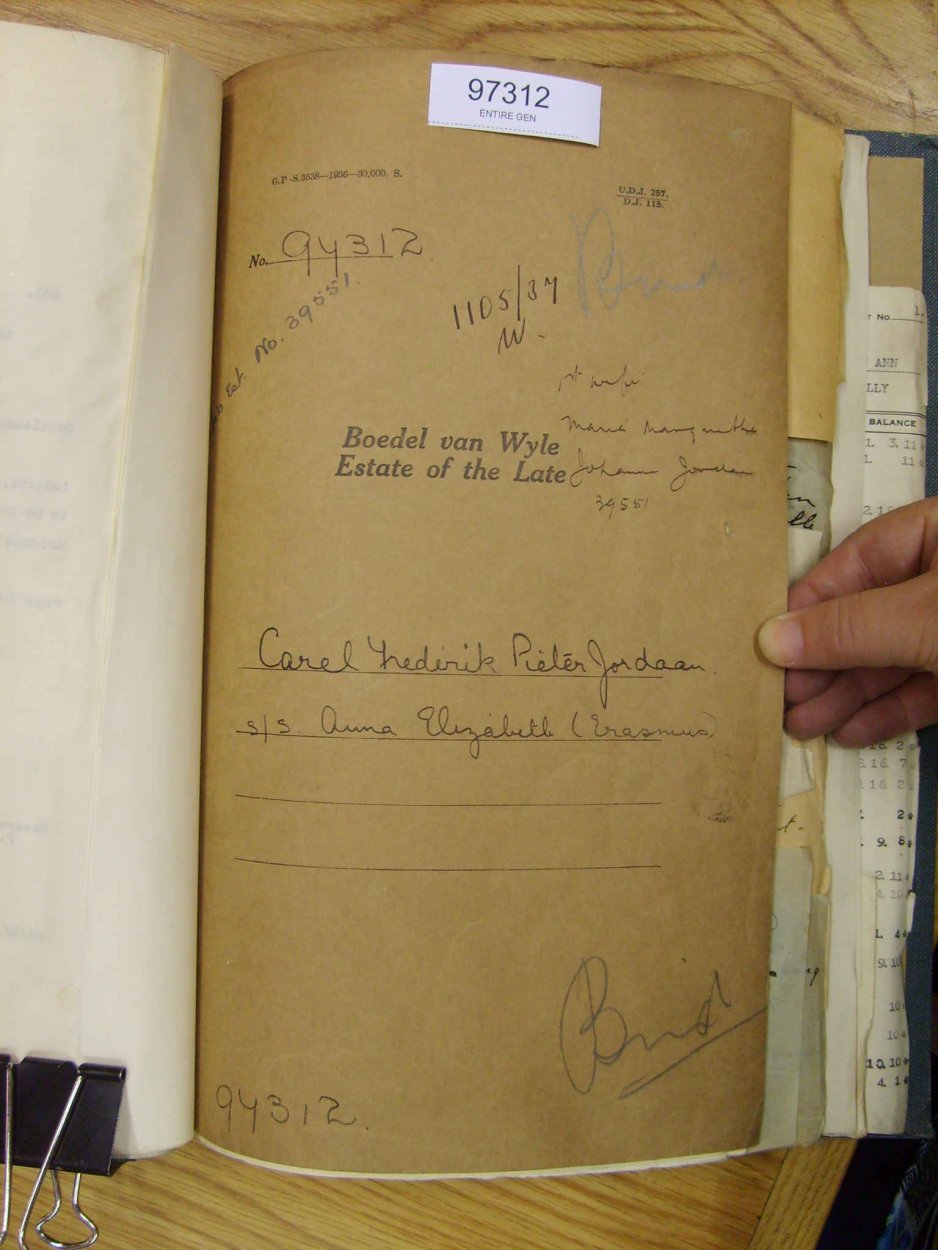 97312
ENTIRE GEN
G.P.-S.3538—1936—30,000. S.
U.D.J. 257.
D.J. 115.
No. 97312
Est. No. 39551
1105/37
W.
1st wife
Maria Margaretha
Johanna Jordaan
39551
Boedel van Wyle
Estate of the Late
Carel Frederik Pieter Jordaan.
s/s. Anna Elizabeth (Erasmus)
97312.
No.
1.
ANN
LLY
BALANCE
1. 3. 11
1. 11
16. 7.
16. 2
2
9. 8
2. 11
4. 10
1. 4
10
10
10. 10
4. 1